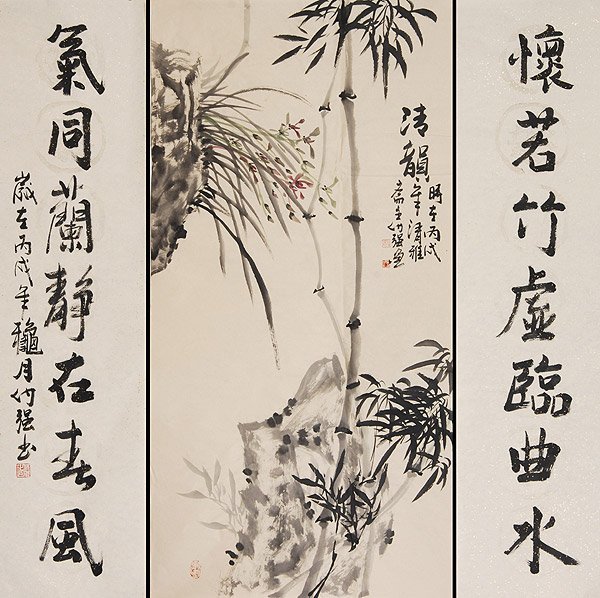 懷若竹虛臨曲水
清韻
時在丙戌
年清雅
斋主何强画
氣同蘭靜在春風
歲在丙戌年龝月何强书